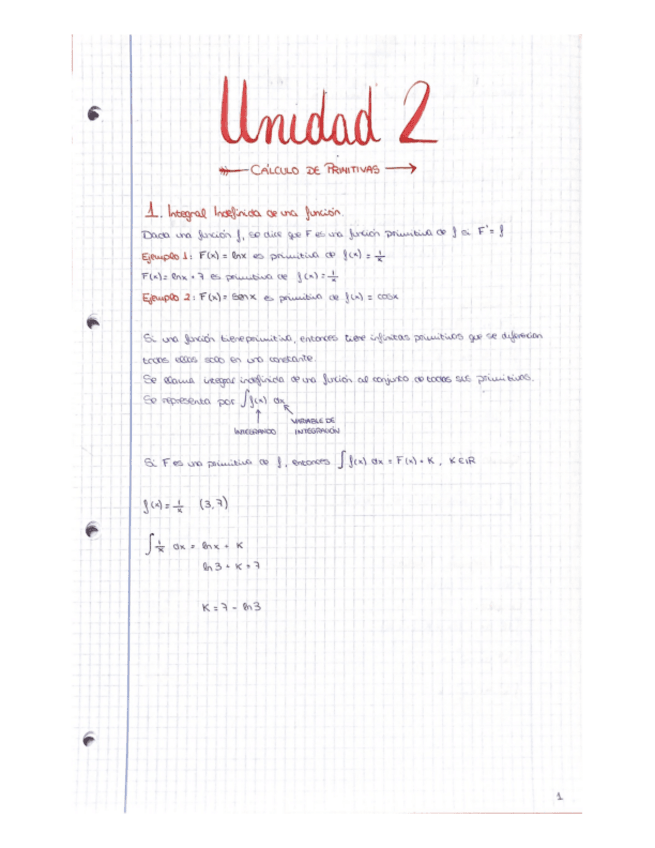 Unidad 2
CÁLCULO DE PRIMITIVAS
1. Integral Indefinida de una función.
Dada una función f, se dice que F es una función primitiva de f si F' = f
Ejemplo 1: F(x) = lnx es primitiva de f(x) = 1/x
F(x) = lnx + 7 es primitiva de f(x) = 1/x
Ejemplo 2: F(x) = senx es primitiva de f(x) = cosx
Si una función tiene primitiva, entonces tiene infinitas primitivas que se diferencian
todas ellas solo en una constante.
Se llama integral indefinida de una función al conjunto de todas sus primitivas.
Se representa por ∫f(x) dx
INTEGRANDO
VARIABLE DE
INTEGRACIÓN
Si F es una primitiva de f, entonces ∫f(x) dx = F(x) + K, K∈IR
f(x) = 1/x (3,7)
∫1/x dx = lnx + K
ln3 + K = 7
K = 7 - ln3
1